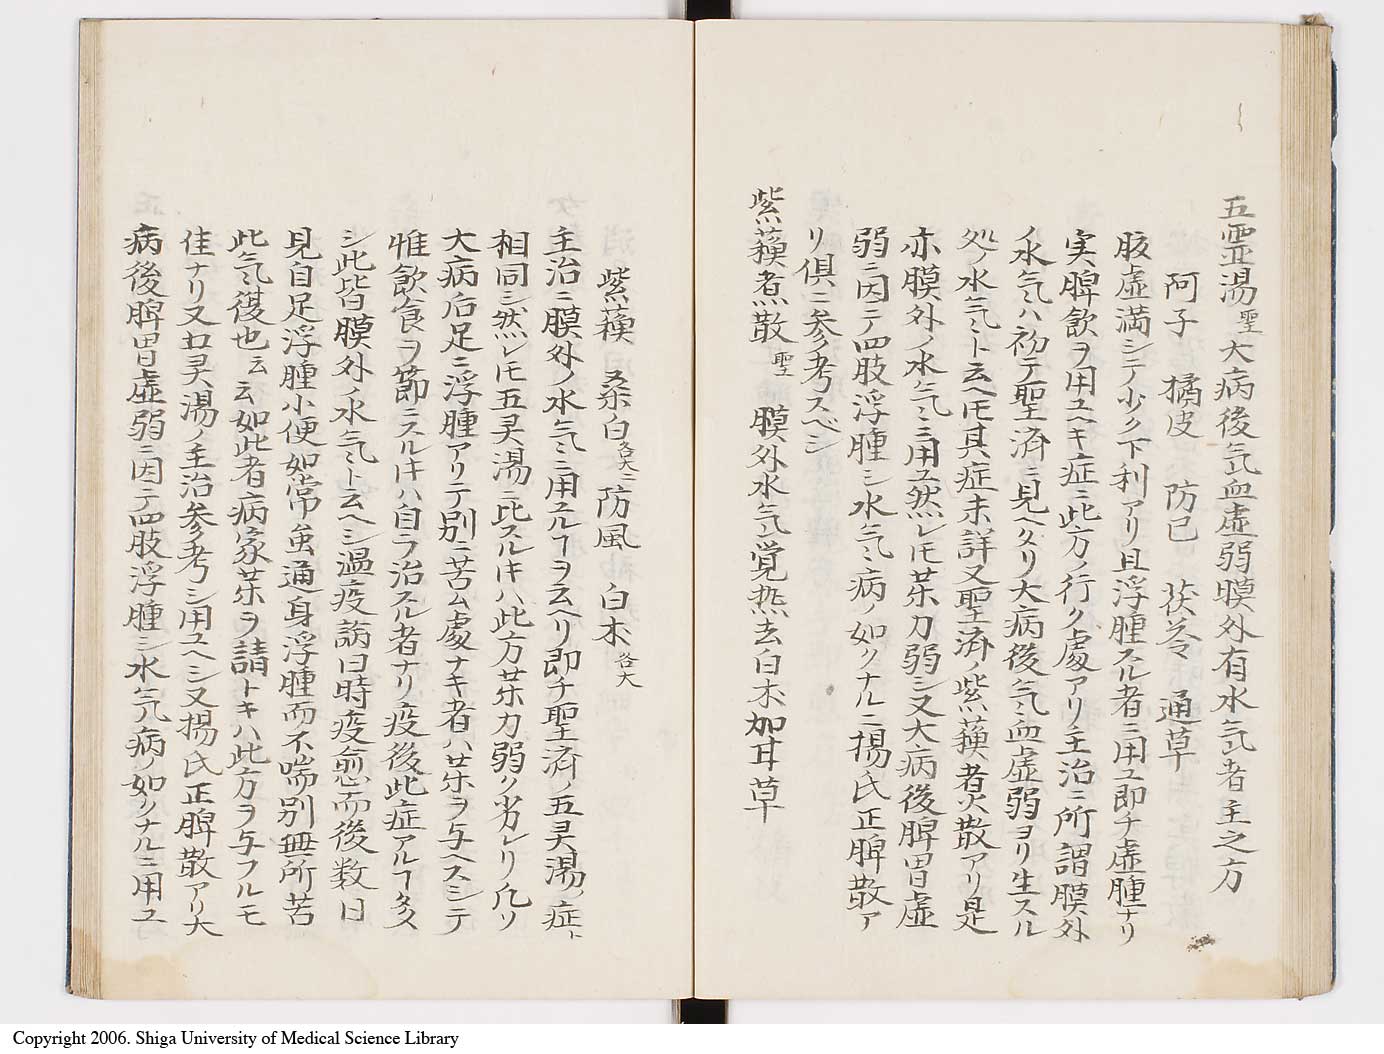 五霊湯聖 大病後气血虚弱膜外有水气者主之方
阿子 橘皮 防已 茯苓 通草
肢虚満シテ少ク下利アリ且浮腫スル者ニ用ユ即チ虚腫ナリ
実脾飲ヲ用ユヘキ症ニ此方ノ行ク處アリ主治ニ所謂膜外
ノ水气ハ初テ聖済ニ見ヘタリ大病後气血虚弱ヨリ生スル
処ノ水气ト云ヘ𪜈其症未詳又聖済ノ紫蘓煮散アリ是
亦膜外ノ水气ニ用ユ然レ𪜈茱力弱シ又大病後脾胃虚
弱ニ因テ四肢浮腫シ水气病ノ如クナルニ揚氏正脾散ア
リ俱ニ参考スベシ
紫蘓煮散聖 膜外水气覚热去白朮加甘草
紫蘓 桑白各大二 防風 白朮各大
主治ニ膜外ノ水气ニ用ユルヿヲ云ヘリ即チ聖済ノ五灵湯ノ症ト
相同シ然レ𪜈五灵湯ニ比スルキハ此方茱力弱ク劣レリ凡ソ
大病后足ニ浮腫アリテ別ニ苦ム處ナキ者ハ茱ヲ与ヘスシテ
惟飲食ヲ節ニスルキハ自ラ治スル者ナリ疫後此症アルヿ多
シ此皆膜外ノ水气ト云ヘシ温疫論曰時疫愈而後数日
見自足浮腫小便如常虽通身浮腫而不喘別無所苦
此气復也云云如此者病家茱ヲ請トキハ此方ヲ与フルモ
佳ナリ又五灵湯ノ主治参考シ用ユヘシ又揚氏正脾散アリ大
病後脾胃虚弱ニ因テ四肢浮腫シ水气病ノ如クナルニ用ユ
Copyright 2006. Shiga University of Medical Science Library